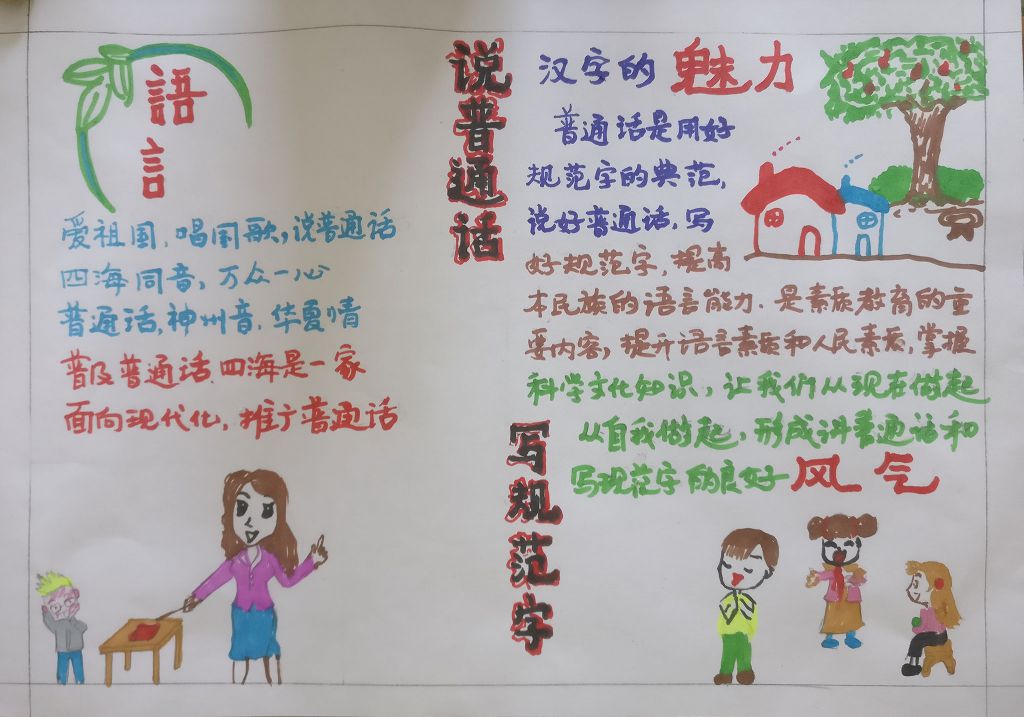 語
言
爱祖国，唱国歌，说普通话
四海同音，万众一心
普通话，神州音，华夏情
普及普通话，四海是一家
面向现代化，推广普通话
说普通话
写规范字
汉字的魅力
普通话是用好
规范字的典范，
说好普通话，写
好规范字，提高
本民族的语言能力．是素质教育的重
要内容，提升语言素质和人民素质，掌握
科学文化知识，让我们从现在做起
从自我做起，形成讲普通话和
写规范字的良好风气